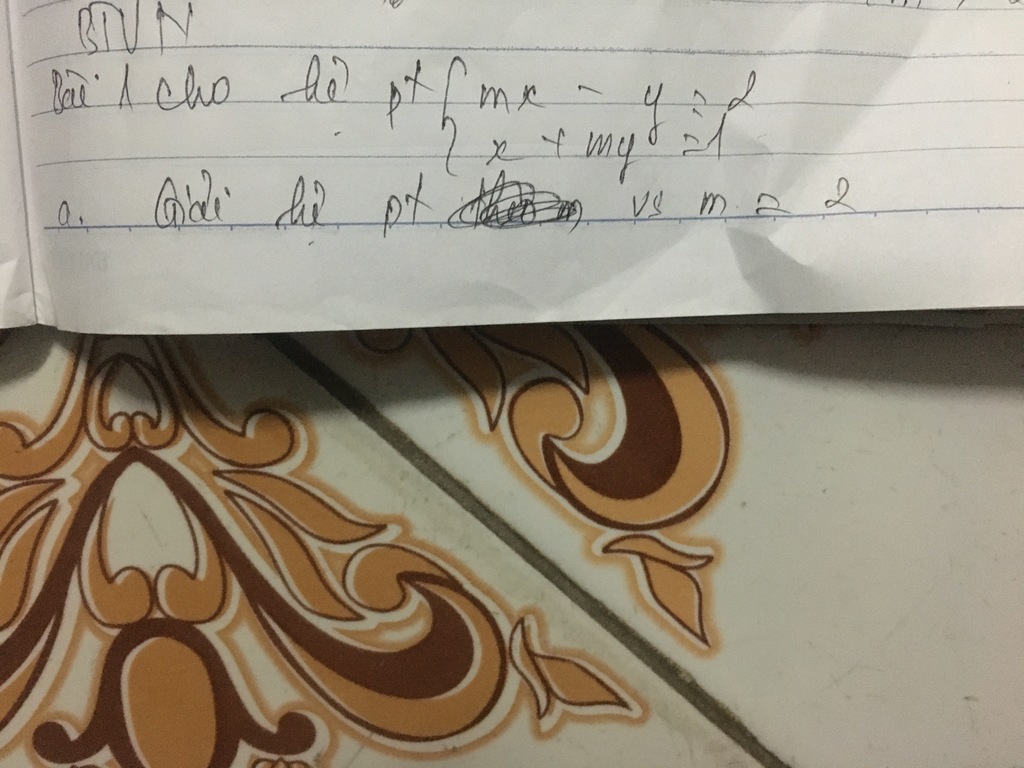 BTVN
Bài 1 cho hệ pt { mx - y = 2
{ x + my = 1
a. Giải hệ pt vs m = 2